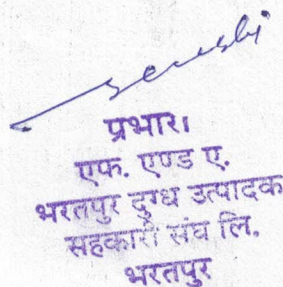 प्रभारी
एफ. एण्ड ए.
भरतपुर दुग्ध उत्पादक
सहकारी संघ लि.
भरतपुर